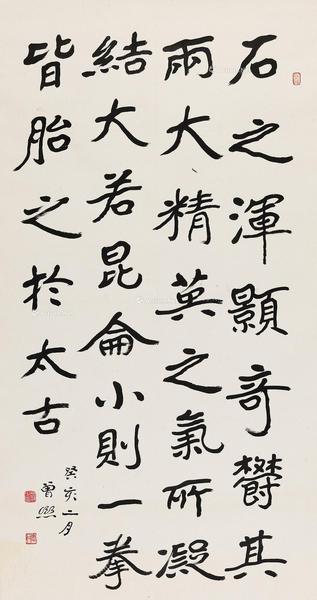 石之渾顥奇鬱其
兩大精英之氣所凝
結大若昆侖小則一拳
皆胎之於太古
癸亥二月
曾熙